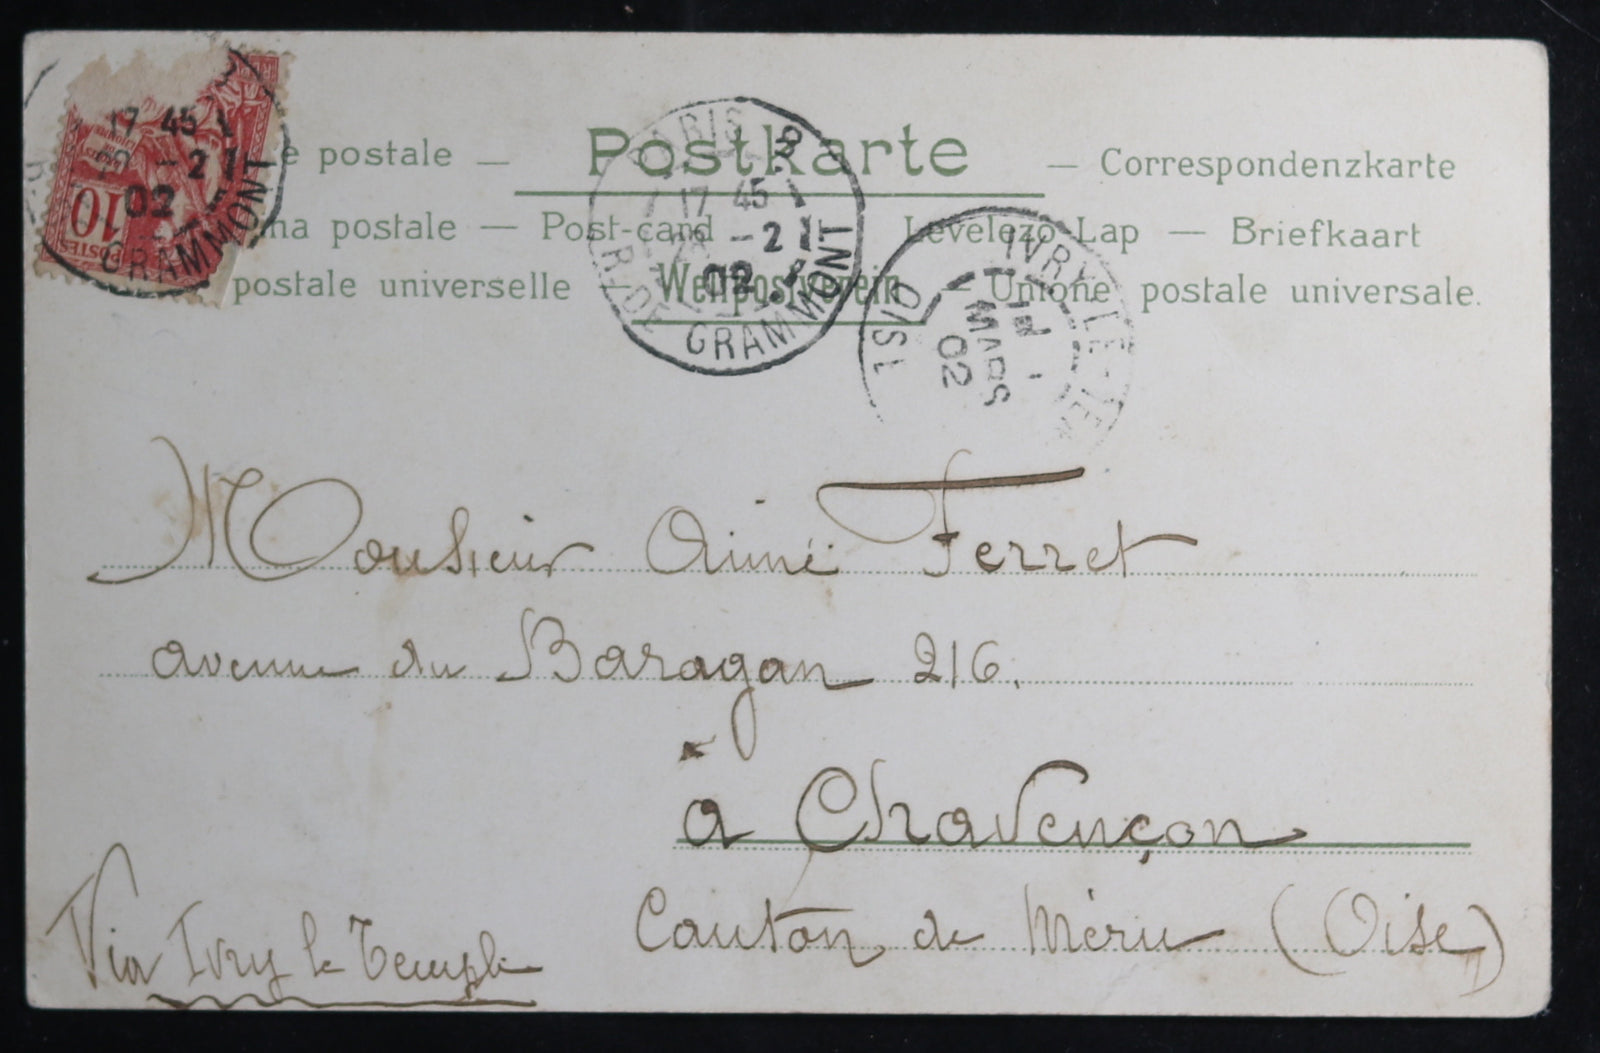 e postale — Postkarte — Correspondenzkarte
na postale — Post-card Levelezo-Lap — Briefkaart
postale universelle — Weltpostverein — Unione postale universale.
10
POSTES
17 45
-2
02
GRAMMONT
PARIS
17 45
-2
02
R. DE GRAMMONT
IVRY-LE-TEM
1
MARS
02
OISE
Monsieur Aimé Ferret
avenue du Baragan 216.
à Chavençon
Canton de Méru (Oise)
Via Ivry le Temple